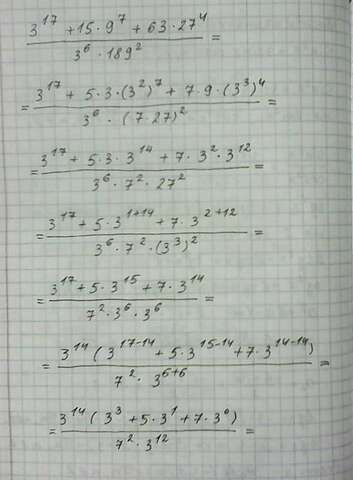 (3^17 + 15 · 9^7 + 63 · 27^4) / (3^6 · 189^2) =
= (3^17 + 5 · 3 · (3^2)^7 + 7 · 9 · (3^3)^4) / (3^6 · (7 27)^2) =
= (3^17 + 5 · 3 · 3^14 + 7 · 3^2 · 3^12) / (3^6 · 7^2 · 27^2) =
= (3^17 + 5 · 3^(1+14) + 7 · 3^(2+12)) / (3^6 · 7^2 · (3^3)^2) =
= (3^17 + 5 · 3^15 + 7 · 3^14) / (7^2 · 3^6 · 3^6) =
= (3^14 (3^(17-14) + 5 · 3^(15-14) + 7 · 3^(14-14))) / (7^2 · 3^(6+6)) =
= (3^14 (3^3 + 5 · 3^1 + 7 · 3^0)) / (7^2 · 3^12) =